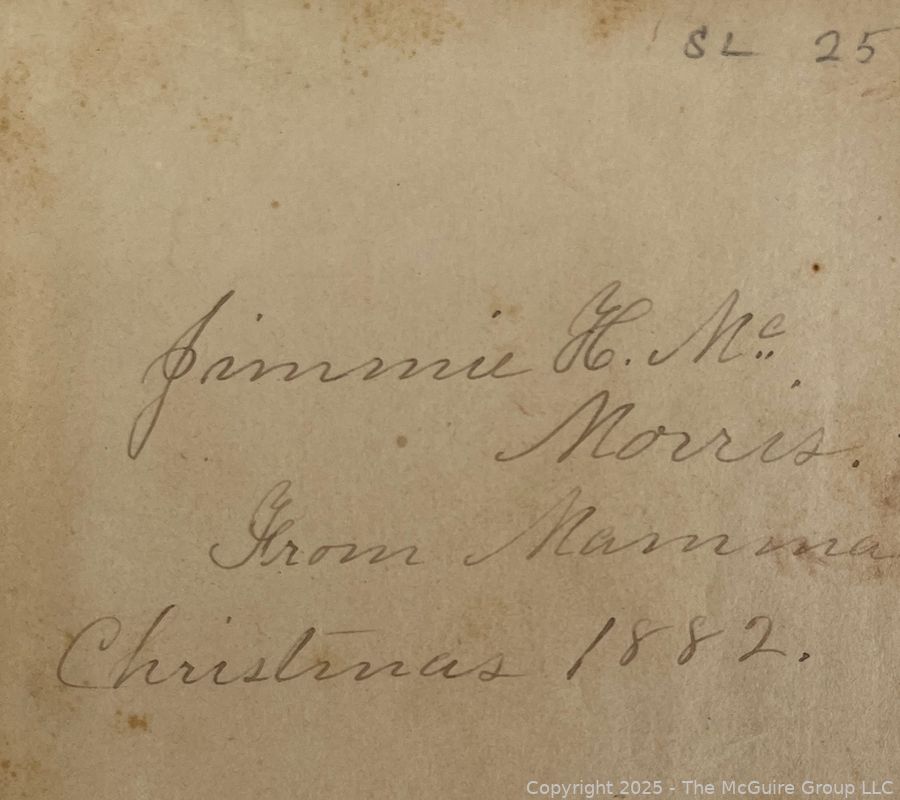 SL 25
Jimmie H. Mc
Morris.
From Mamma
Christmas 1882.
Copyright 2025 - The McGuire Group LLC